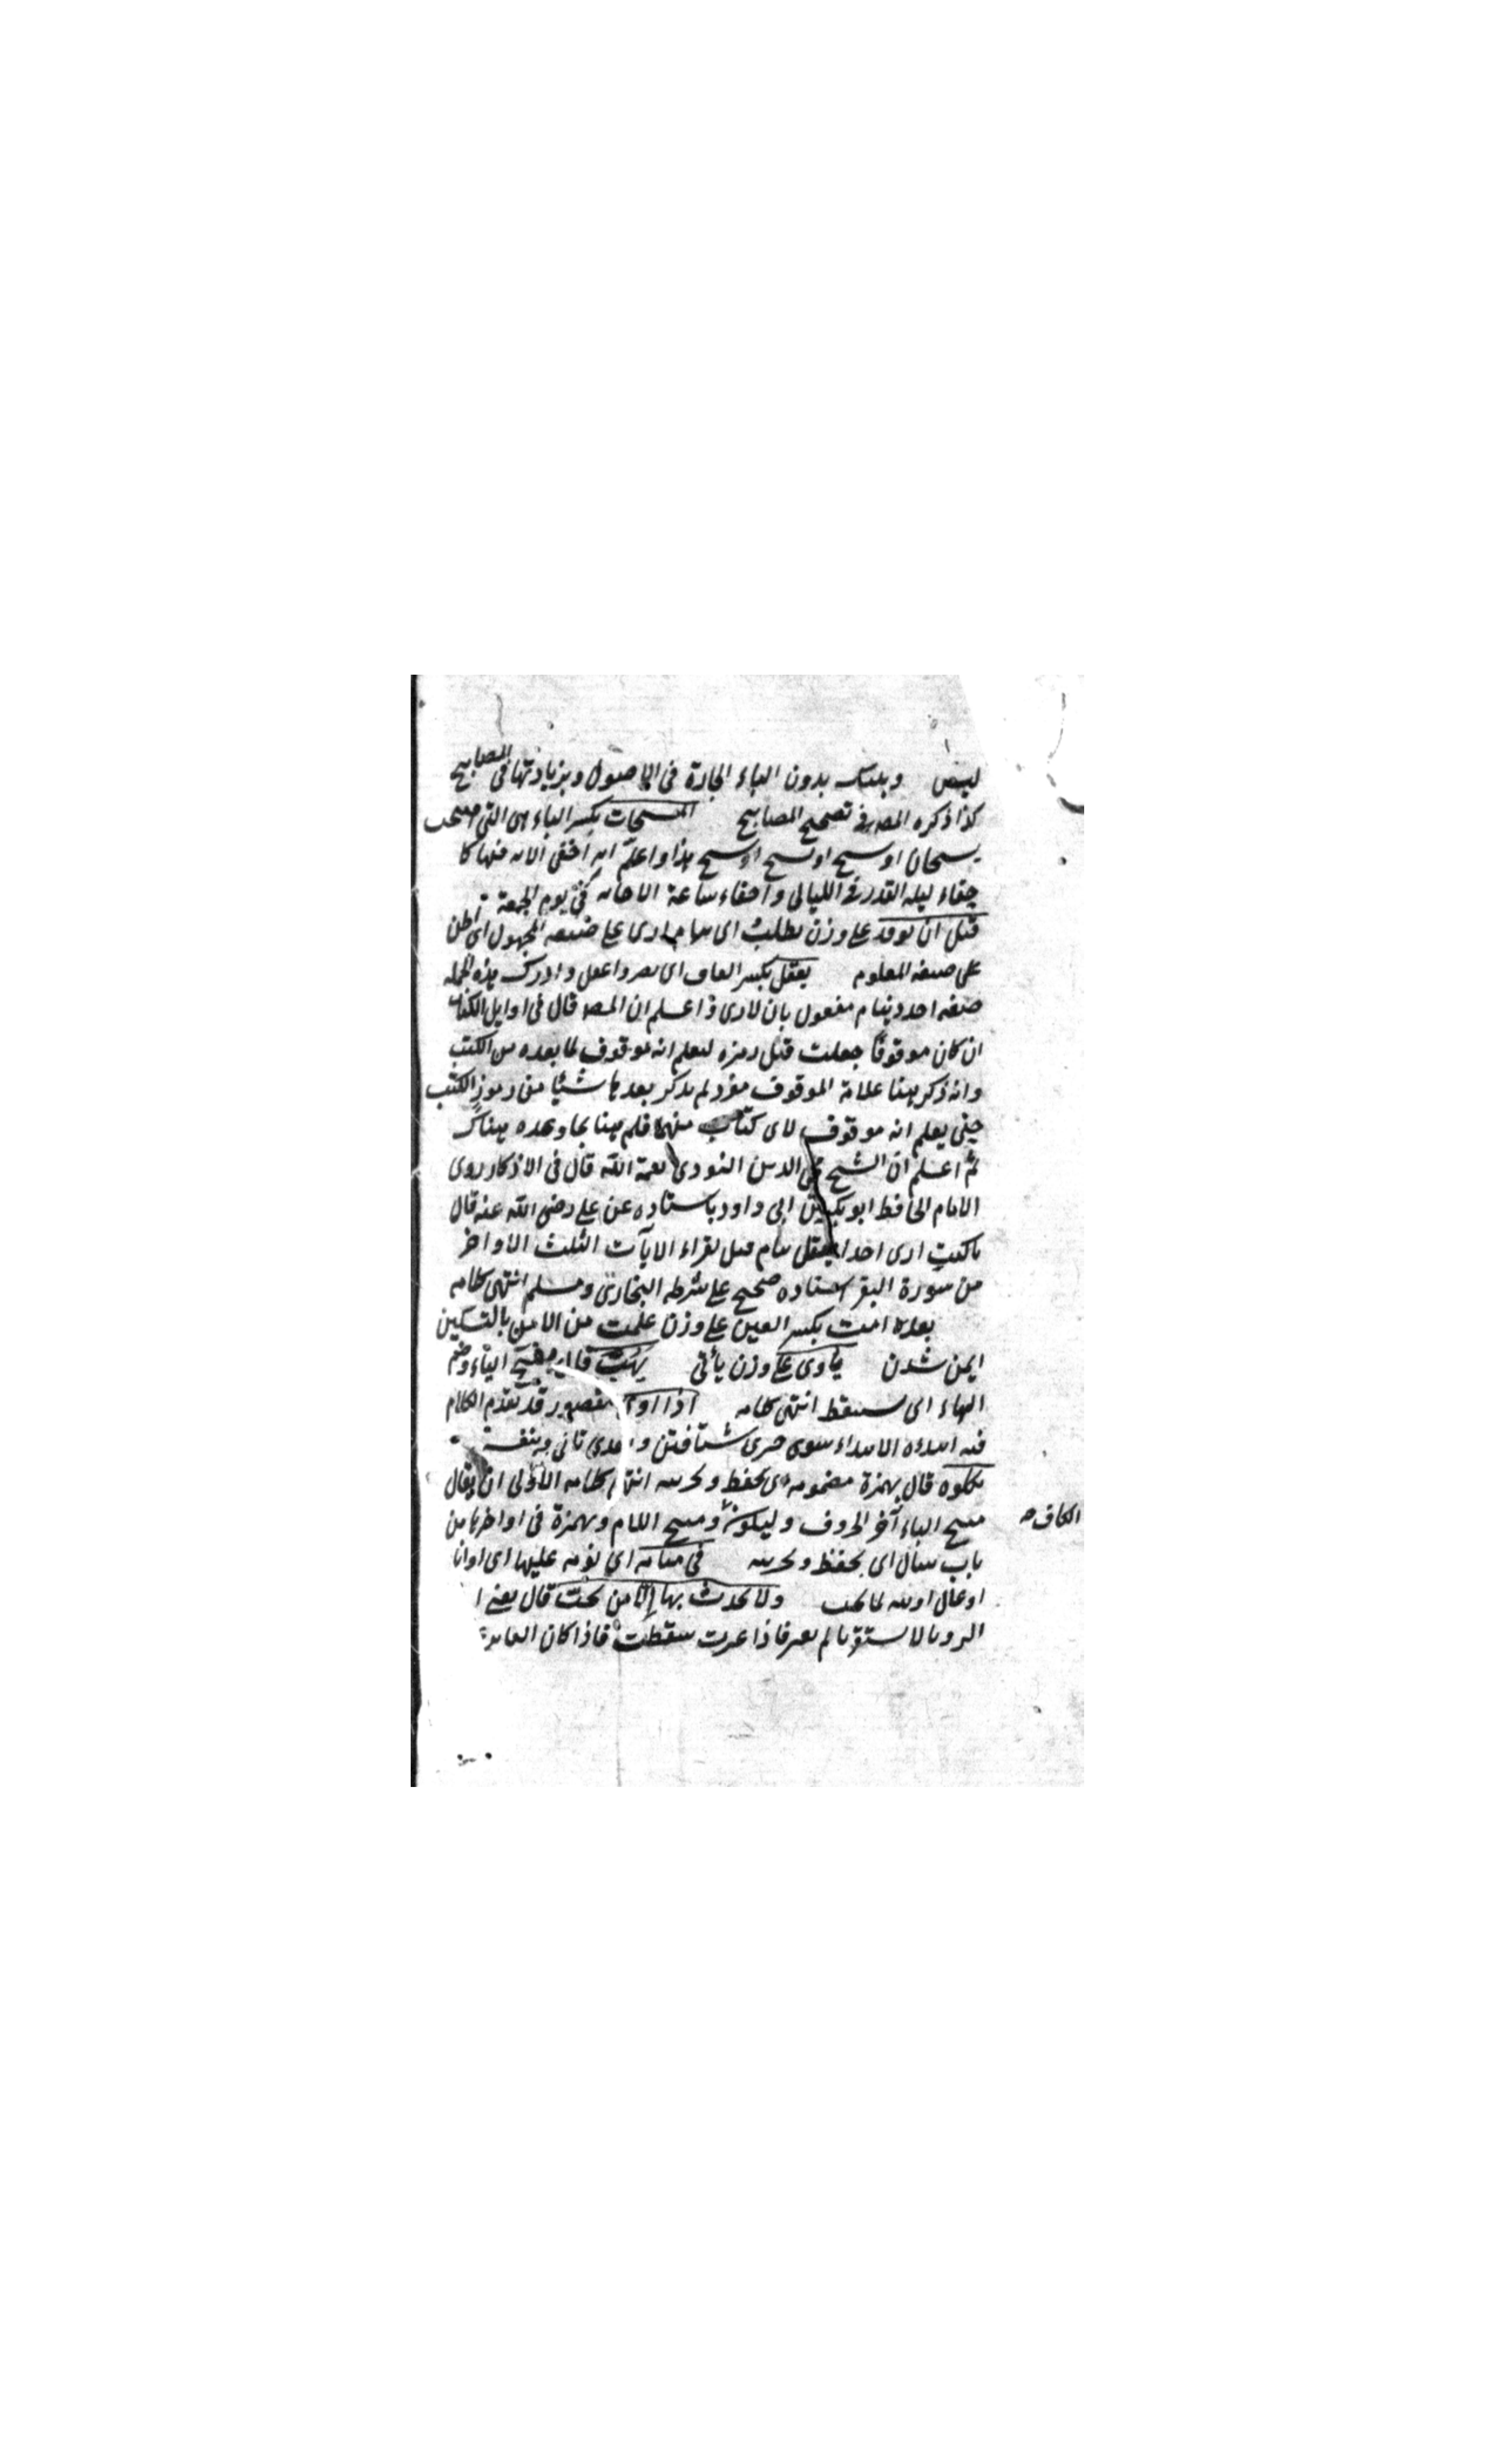 وبدون الباء الجارة فى الاصول وبزيادتها فى المصابيح
كذا ذكره المصه فى تصحيح المصابيح المسبحات بكسر الباء هى التى
سبحان او سبح او يسبح او سبح هذا واعلم انه اخفى الاية فيها كا
خفاء ليلة القدر فى الليالى واخفاء ساعة الاجابة فى يوم الجمعة
قبل ان يرقد على وزن يطلب اى ينام ارى على صيغه المجهول اى اظن
على صيغه المعلوم يعقل بكسر القاف اى وادرك هذه الجمله
صفه احد وينام مفعول ثان لارى ثم اعلم ان المصه قال فى اوايل الكتاب
ان كان موقوفا جعلت قبل رمزه ليعلم انه موقوف لما بعده من الكتب
وانه ذكر هنا علامة الموقوف مو ولم يذكر بعدها شيئا من رموز الكتب
حتى يعلم انه موقوف لاى كتاب منها فلم هنا بما وعده هناك
ثم اعلم ان الشيخ محى الدين النووى رحمة الله قال فى الاذكار روى
الامام الحافظ ابو بكر بن ابى داود باسناده عن على رضى الله عنه قال
ما كنت ارى احدا يعقل ينام قبل يقراء الايآت الثلث الاواخر
من سورة البقر اسناده صحيح على شرط البخارى ومسلم انتهى كلامه
امنت بكسر العين على وزن علمت من الامن بالتسكين
ايمن شدن ياوى على وزن يأتى يهب قال بفتح الياء وضم
الهاء اى سقط انتهى كلامه اذا اوى مقصور قد تقدم الكلام
فيه ابتدره الابتدار سوى چيزى شتافتن
يكلوه قال بهمزة مضمومه اى يحفظ ويحرسه انتهى كلامه الاولى ان يقال
بفتح الياء آخر الحروف وليكون وفتح اللام وبهمزة فى اواخرها من
الكاف صه
باب سأل اى يحفظ ويحرسه فى منامه اى نومه عليها اى
او قال لما يحب ولا يحدث بها الا من يحب قال يعنى ا
الرويا لا تستقر ما لم تعبر فاذا عبرت سقطت فاذا كان العابر